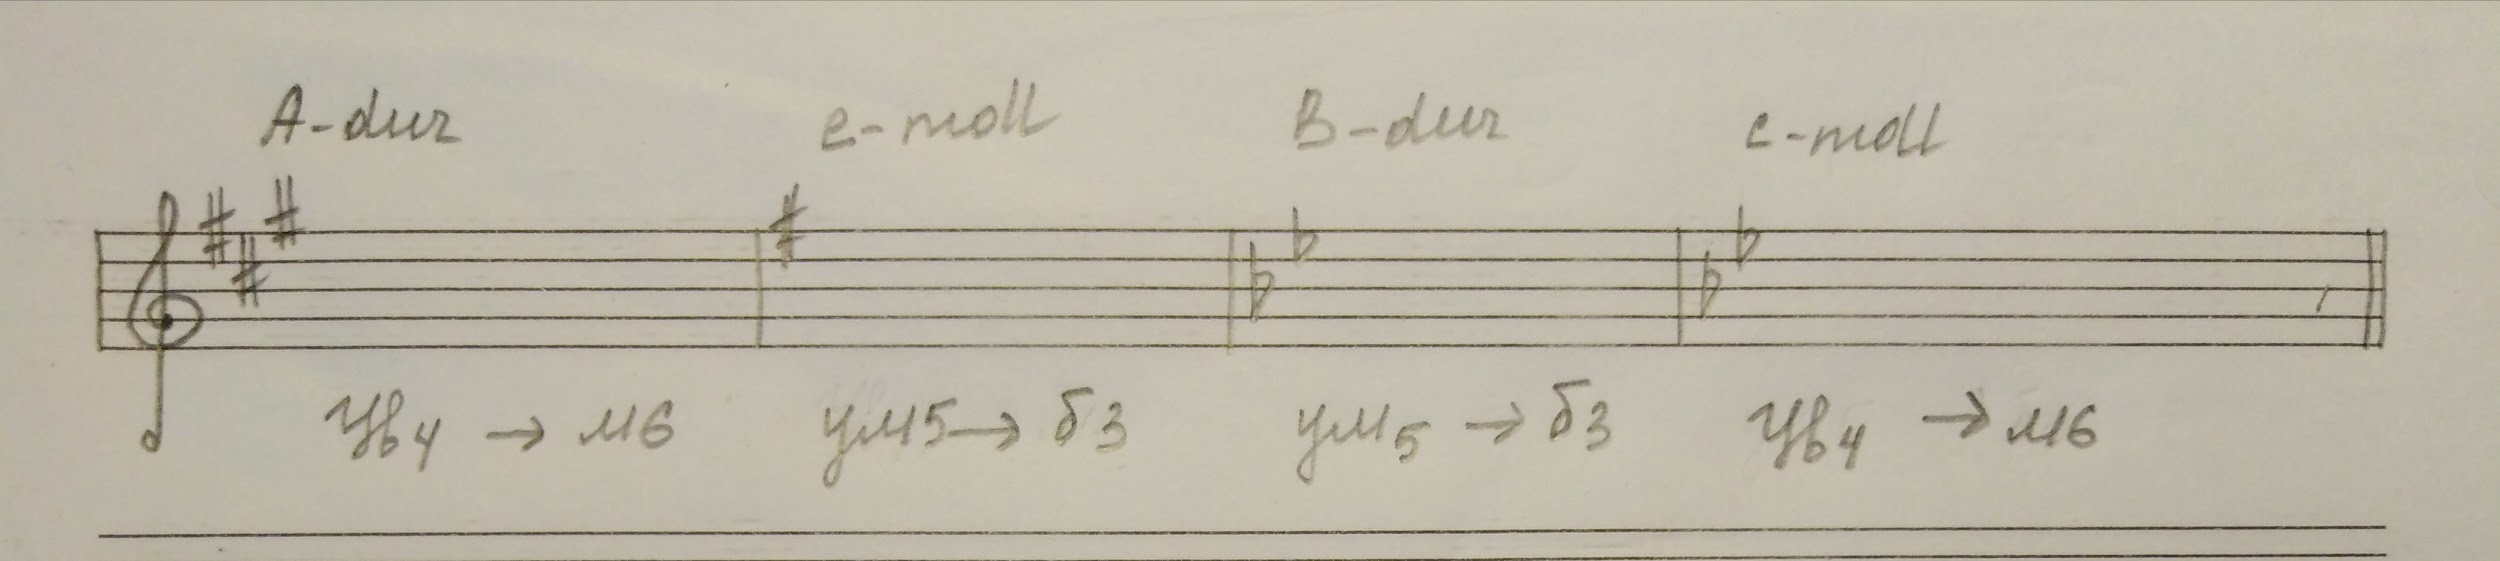 A-dur e-moll B-dur c-moll
Ув4 → м6 ум5 → б3 ум5 → б3 Ув4 → м6